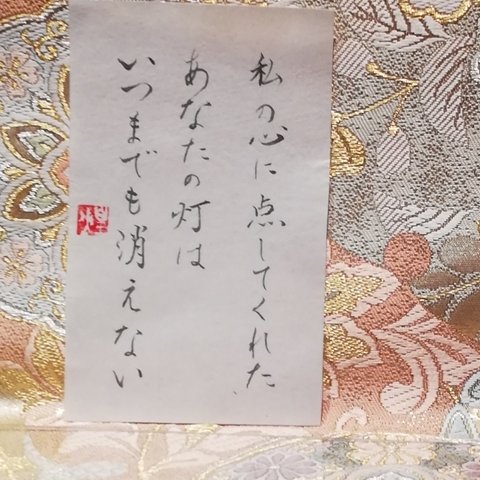 私の心に点してくれた
あなたの灯は
いつまでも消えない